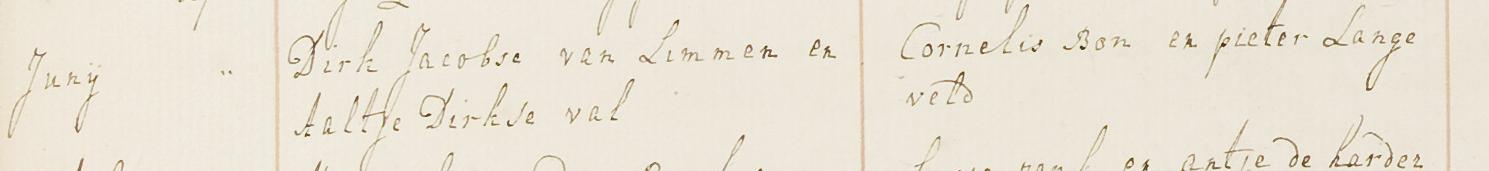 Junij " Dirk Jacobse van Limmen en Cornelis Bon en pieter Lange
Aaltje Dirkse val veld
en antje de harder